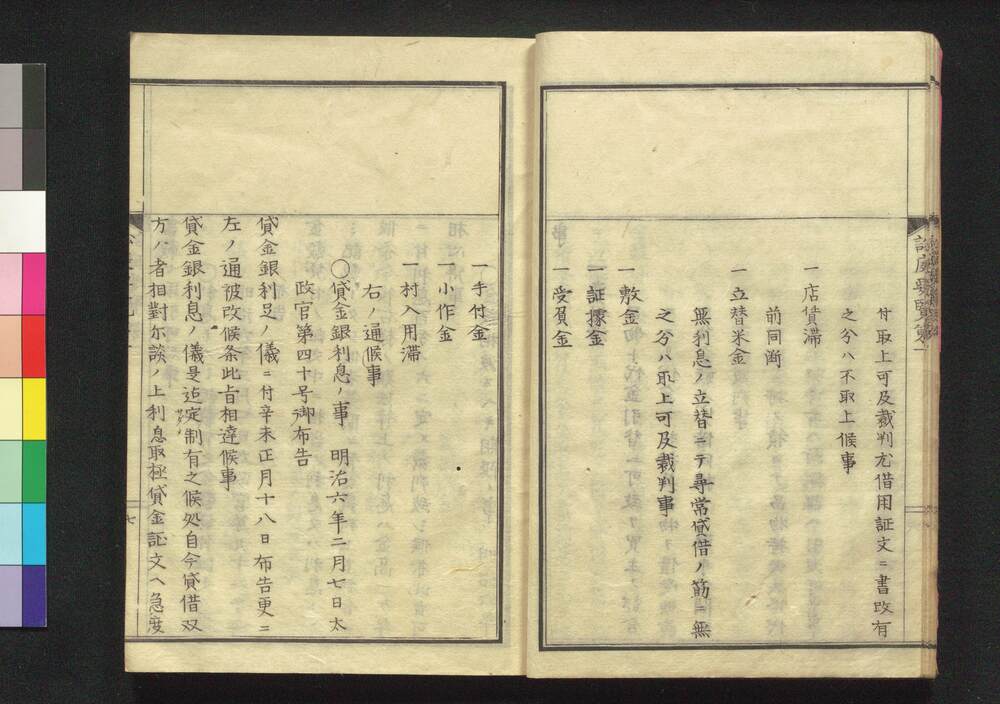 付取上可及裁判尤借用証文ニ書改有
之分ハ不取上候事
一店賃滞
前同断
一立替米金
無利息ノ立替ニテ尋常貸借ノ筋ニ無
之分ハ取上可及裁判事
一敷金
一証據金
一受負金
一手付金
一小作金
一村入用滞
右ノ通候事
〇貸金銀利息ノ事 明治六年二月七日太
政官第四十号御布告
貸金銀利足ノ儀ニ付辛未正月十八日布告更ニ
左ノ通被改候条此旨相達候事
貸金銀利息ノ儀是迄定制有之候処自今貸借双
方ノ者相對示談ノ上利息取極貸金証文ヘ急度
七